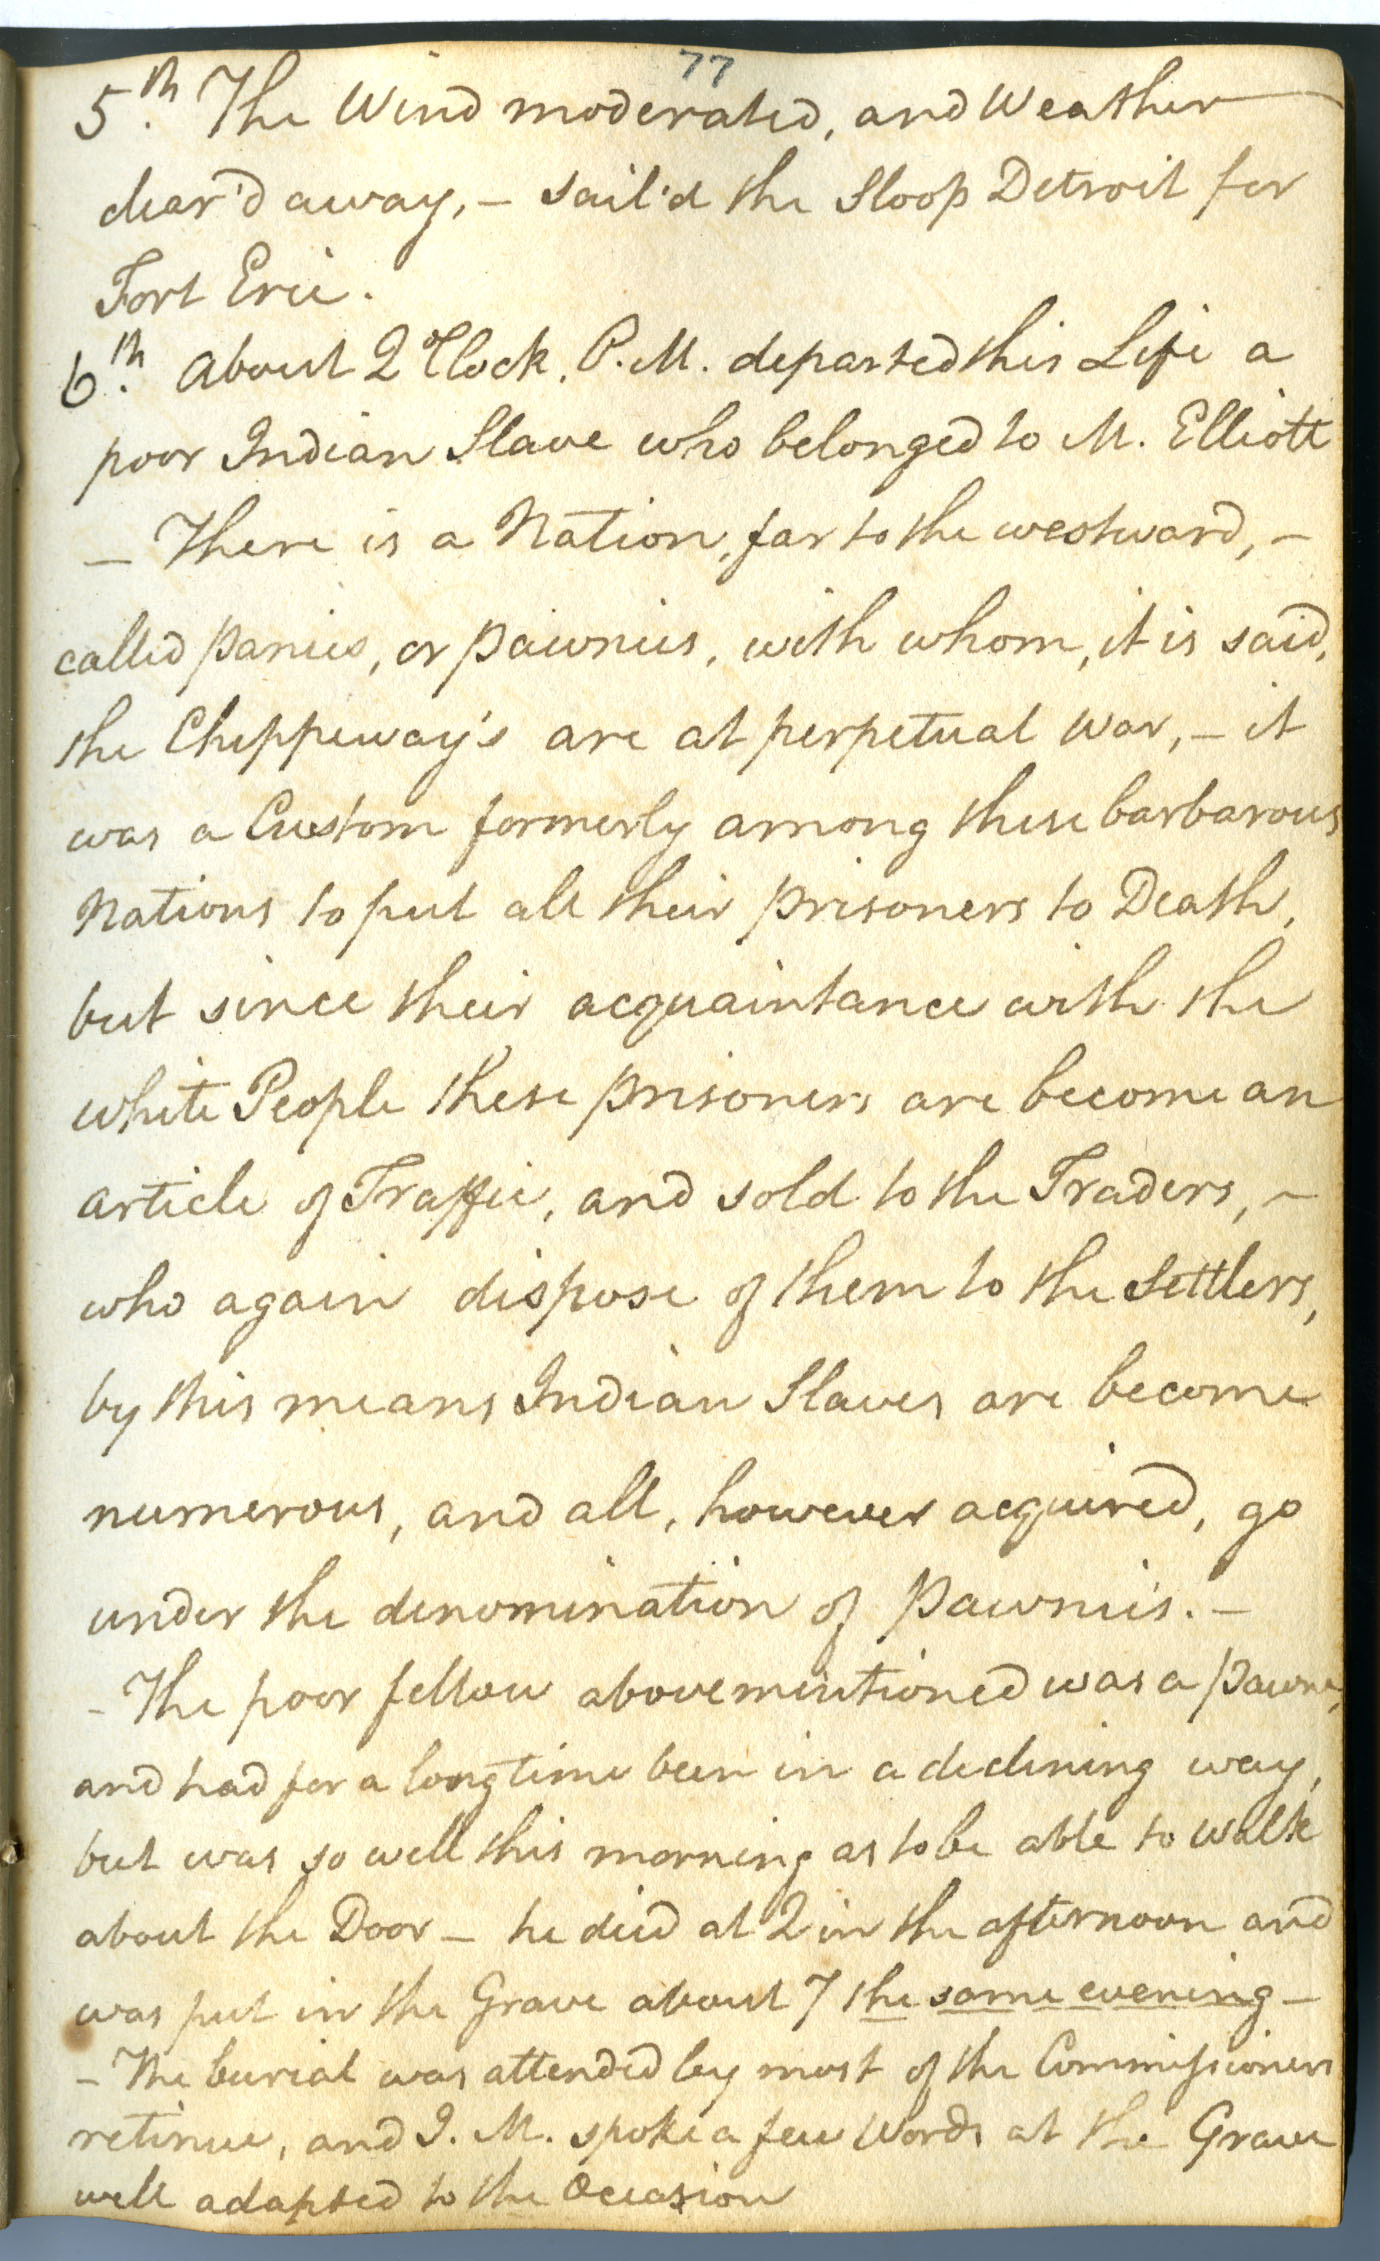 77
5th. The Wind moderated, and Weather
clear'd away, - sail'd the Sloop Detroit for
Fort Erie.
6th. About 2 oClock, P.M. departed this Life a
poor Indian Slave who belonged to M. Elliott
- There is a Nation, far to the westward, -
called Panies, or Pawnies, with whom, it is said,
the Chippeway's are at perpetual War, - it
was a Custom formerly among these barbarous
Nations to put all their prisoners to Death,
but since their acquaintance with the
white People these prisoners are become an
article of Traffic, and sold to the Traders, -
who again dispose of them to the Settlers,
by this means Indian Slaves are become
numerous, and all, however acquired, go
under the denomination of Pawnies. -
- The poor fellow abovementioned was a Pawne,
and had for a long time been in a declining way,
but was so well this morning as to be able to walk
about the Door - he died at 2 in the afternoon and
was put in the Grave about 7 the same evening -
- The burial was attended by most of the Commissioners
retinue, and J. M. spoke a few Words at the Grave
well adapted to the Occasion